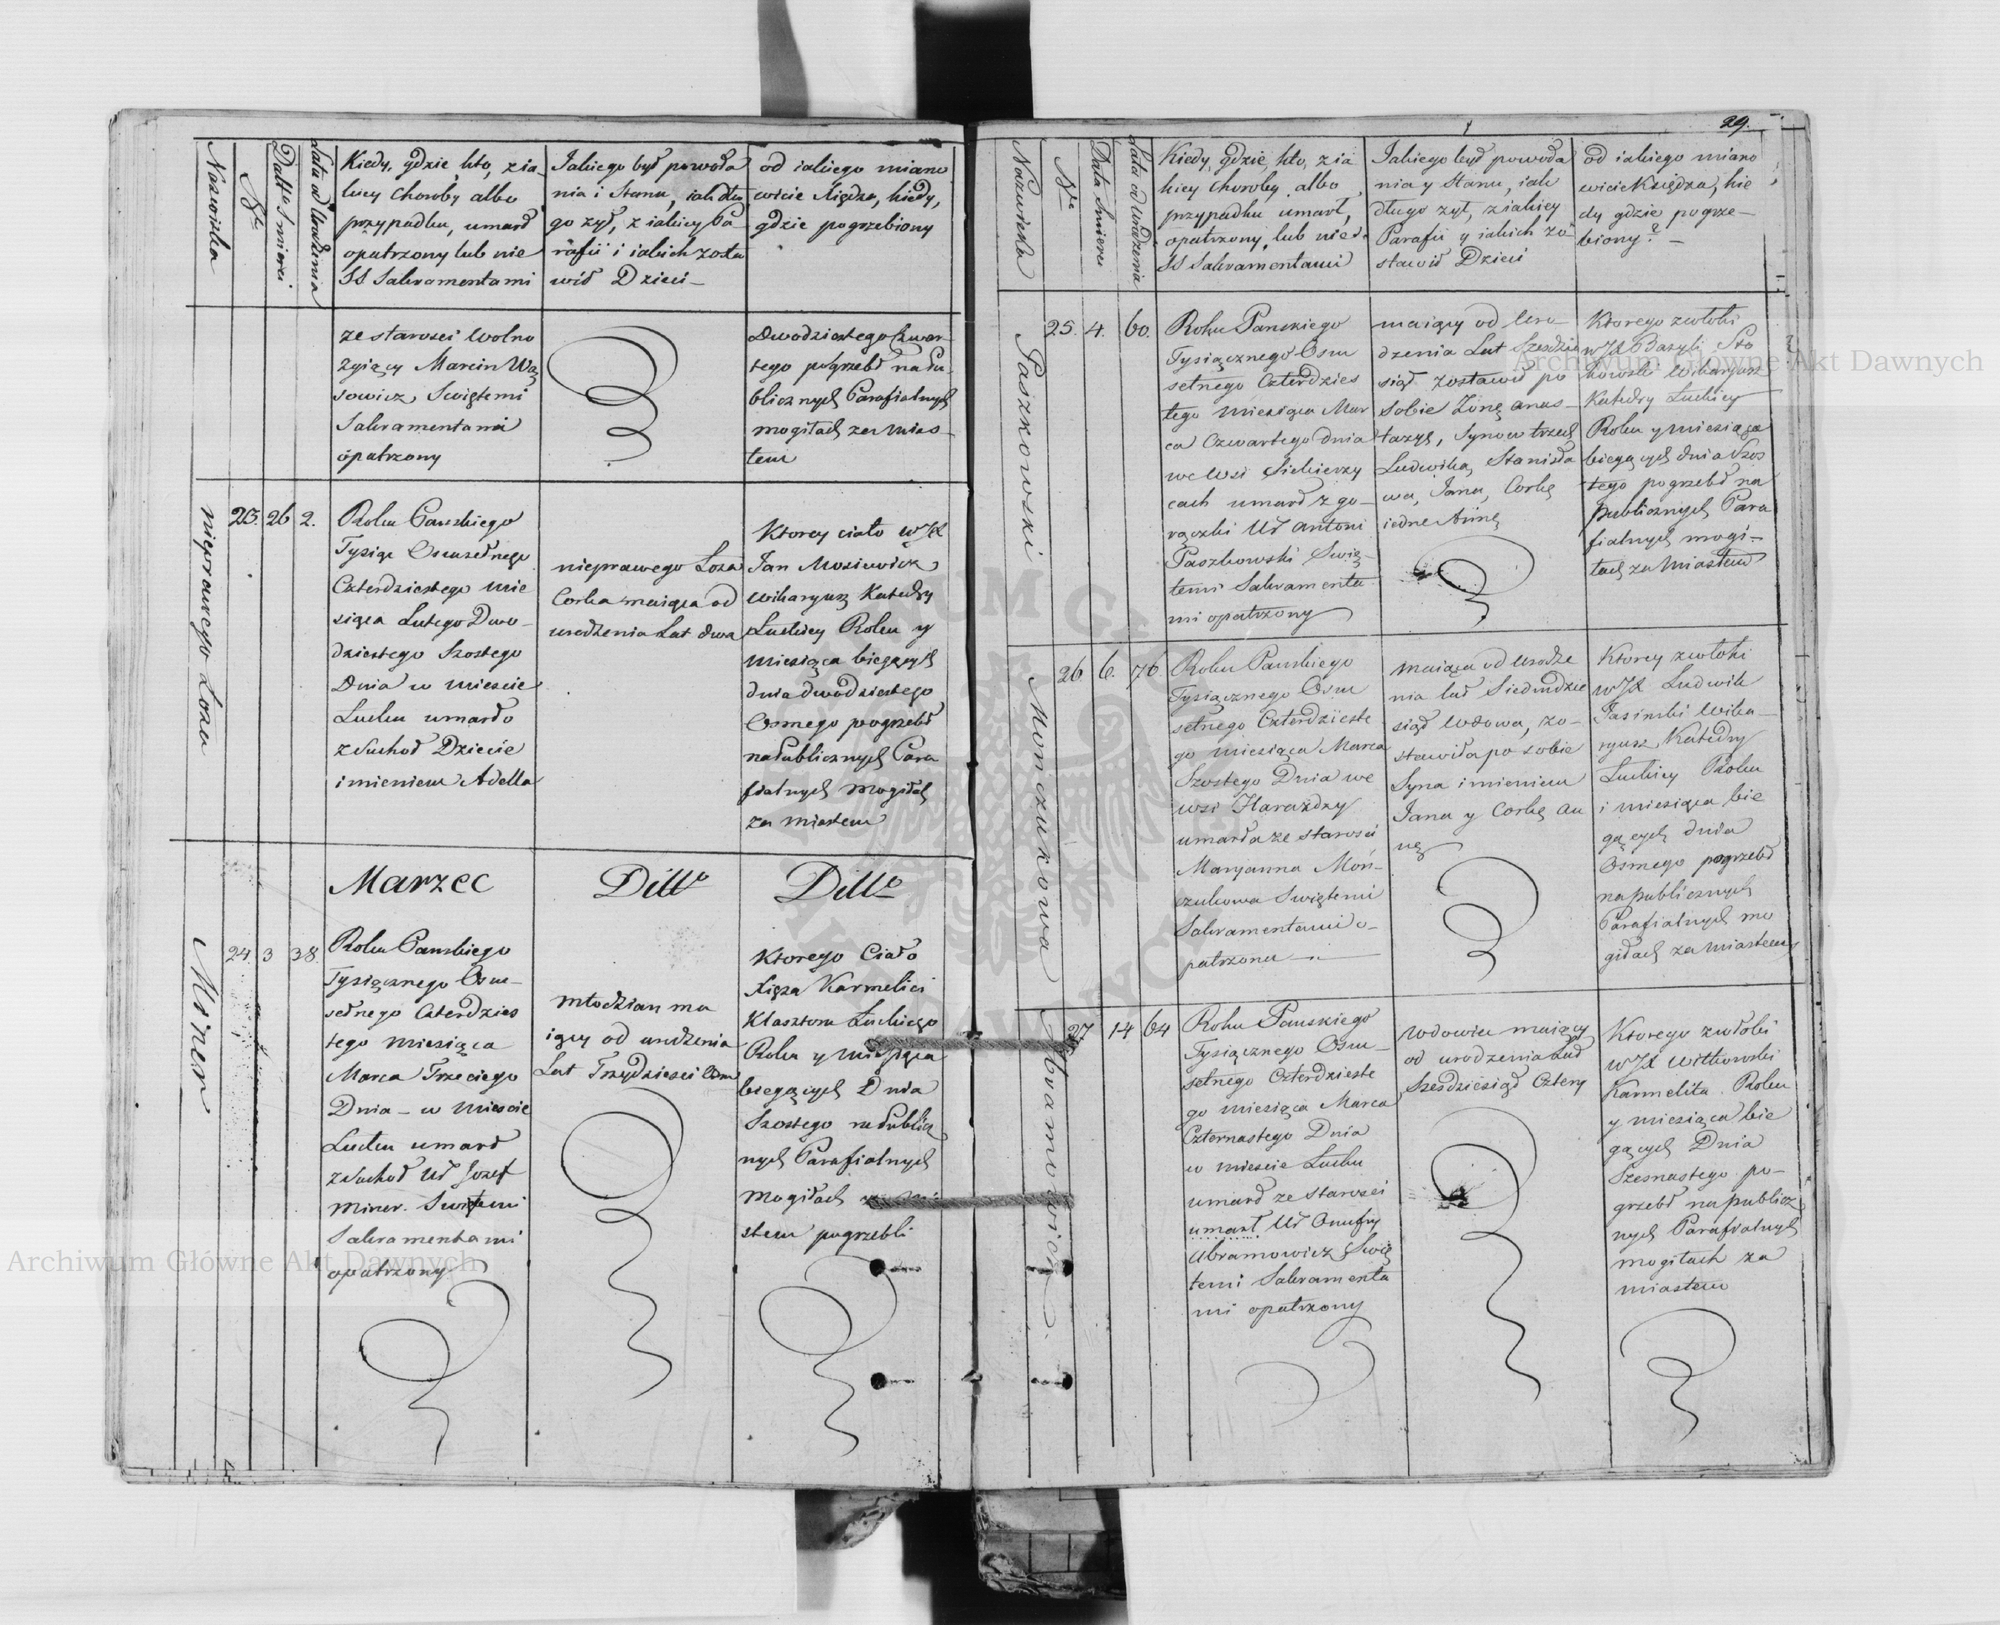 Nazwiska
Nr
Data Smierci
Lata od Urodzenia
Kiedy, gdzie, kto, z ia-
kiey Choroby albo
przypadku, umarł
opatrzony lub nie
SS Sakramentami
Jakiego był powoła
nia i Stanu, iak dłu
go żył, z iakiey Pa
rafii i iakich zosta
wił Dzieci
od iakiego miano
wicie Xiędza, kiedy,
gdzie pogrzebiony
ze starosci wolno
zyiący Marcin Wą
sowicz Swiętemi
Sakramentami
opatrzony
Dwodziestego Czwar-
tego pogrzebł na Pu-
blicznych Parafialnych
mogiłach za Mias-
tem
nieprawego Łoza
23. 26 2.
Roku Panskiego
Tysiąc Osmsetnego
Czterdziestego mie
siąca Lutego Dwo-
dziestego Szostego
Dnia w miescie
Łucku umarło
z Suchot Dziecie
imieniem Adella
nieprawego Łoza
Corka maiąca od
urodzenia Lat dwa
Ktorey ciało WJX
Jan Mosiewicz
wikaryusz Katedry
Łuckiey Roku y
miesiąca bieżących
dnia dwodziestego
Osmego pogrzebł
na Publicznych Para
fialnych Mogiłach
za miastem
Marzec
Ditto
Ditto
Miner
24. 3 38.
Roku Panskiego
Tysiącznego Osm-
setnego Czterdzies
tego miesiąca
Marca Trzeciego
Dnia - w miescie
Łucku umarł
z Suchot Ur Jozef
Miner. Swiętemi
Sakramentami
opatrzony
młodzian ma
iący od urodzenia
Lat Trzydziesci Osm
Ktorego Ciało
Xięża Karmelici
Klasztoru Łuckiego
Roku y miesiąca
biegących Dnia
Szostego na Publicz
nych Parafialnych
Mogiłach za mia
stem pogrzebli
29.
Nazwiska
Nr
Data Smierci
Lata od Urodzenia
Kiedy, gdzie, kto, z ia
kiey Choroby, albo
przypadku umarł,
opatrzony, lub nie
SS Sakramentami
Jakiego był powoła
nia y Stanu, iak
długo żył, z iakiey
Parafii y iakich zo
stawił Dzieci
od iakiego miano
wicie Księdza, kie
dy gdzie pogrze-
biony? -
Paszkowski
25. 4. 60.
Roku Panskiego
Tysiącznego Osm
setnego Czterdzies
tego miesiąca Mar
ca Czwartego dnia
we wsi Siekierzy
cach umarł z go-
rączki Ur Antoni
Paszkowski Swię-
temi Sakramenta
mi opatrzony
maiący od Uro-
dzenia Lat Szesdzie
siąt zostawił po
sobie Zonę Anas-
tazyę, Synow trzech
Ludwika, Stanisła
wa, Jana, Corkę
iedne Annę
Ktorego zwłoki
WJX Bazyli Sto
kowski Wikaryusz
Katedry Łuckiey
Roku y miesiąca
biegących dnia Szos
tego pogrzebł na
Publicznych Para
fialnych mogi-
łach za Miastem
Monczukowa
26. 6. 76.
Roku Panskiego
Tysiącznego Osm
setnego Czterdzieste
go miesiąca Marca
Szostego Dnia we
wsi Harazdzy
umarła ze starosci
Maryanna Moń-
czukowa Swiętemi
Sakramentami o-
patrzona
maiąca od urodze
nia lat Siedmdzie
siąt wdowa, zo-
stawiła po sobie
Syna imieniem
Jana y Corkę An
nę
Ktorey zwłoki
WJX Ludwik
Jasinski Wika-
ryusz Katedry
Łuckiey Roku
i miesiąca bie
gących dnia
Osmego pogrzebł
na publicznych
Parafialnych mo
giłach za Miastem
Abramowicz
27. 14 64
Roku Panskiego
Tysiącznego Osm-
setnego Czterdzieste
go miesiąca Marca
Czternastego Dnia
w miescie Łucku
umarł ze starosci
umarł Ur Onufry
Abramowicz Swię
temi Sakramenta
mi opatrzony
Wdowiec maiący
od urodzenia Lat
Szesdziesiąt Cztery
Ktorego zwłoki
WJX Witkowski
Karmelita Roku
y miesiąca bie
gących Dnia
Szesnastego po-
grzebł na publicz
nych Parafialnych
mogiłach za
miastem
Archiwum Główne Akt Dawnych
Archiwum Główne Akt Dawnych